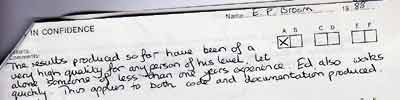 Name E. P. Broom 1988
IN CONFIDENCE
A B C D E F
X
Comments:
The results produced so far have been of a
very high quality for any person of his level, let
alone someone of less than one years experience. Ed also works
quickly. This applies to both code and documentation produced.